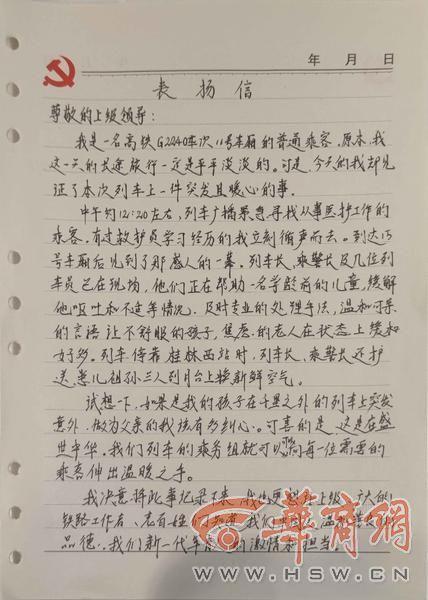 年 月 日
表扬信
尊敬的上级领导:
我是一名高铁G2240车次11号车厢的普通乘客,原本,我
这一天的长途旅行一定是平平淡淡的。可是,今天的我却见
证了本次列车上一件突发且暖心的事。
中午约12:20左右,列车广播紧急寻找从事医护工作的
乘客,有过救护员学习经历的我立刻循声而去。到达15
号车厢后见到了那感人的一幕。列车长、乘警长及几位列
车员已在现场,他们正在帮助一名学龄前的儿童,缓解
他呕吐和不适等情况,及时专业的处理手法,温和可亲
的言语让不舒服的孩子,焦虑的老人在状态上缓和
好多。列车停靠桂林西站时,列车长、乘警长还护
送患儿祖孙三人到月台上换新鲜空气。
试想一下,如果是我的孩子在千里之外的列车上突发
意外,做为父亲的我该有多纠心。可喜的是,这是在盛
世中华。我们列车的乘务组就可以为每一位需要的
乘客伸出温暖之手。
我决意将此事记录下来,我也更想让上级、广大的
铁路工作者、老百姓们知道,我们中国人温和善良的
品德,我们新一代年 的激情和担当!
华商网
WWW.HSW.CN